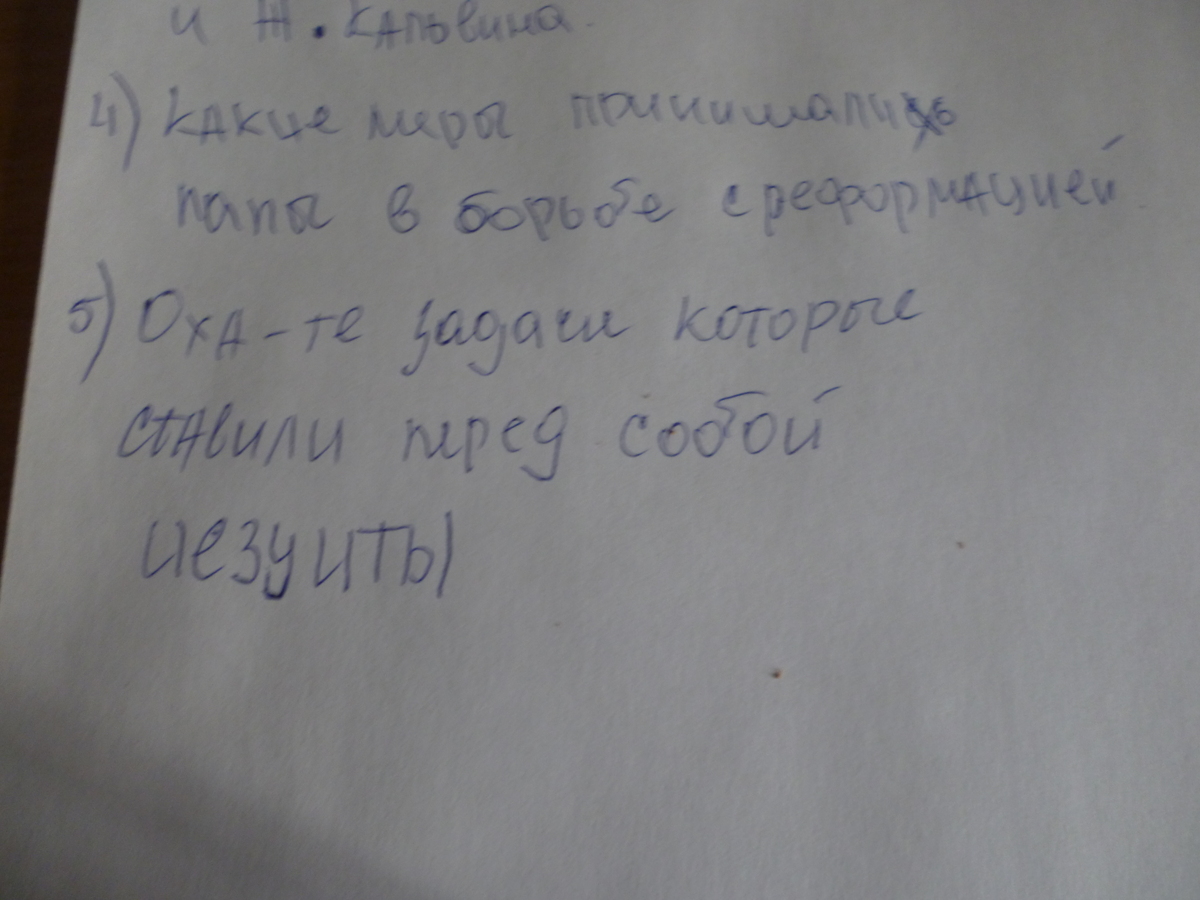 и Ж. Кальвина.
4) Какие меры принимали
папы в борьбе с реформацией.
5) Оха-те задачи которые
ставили перед собой
иезуиты